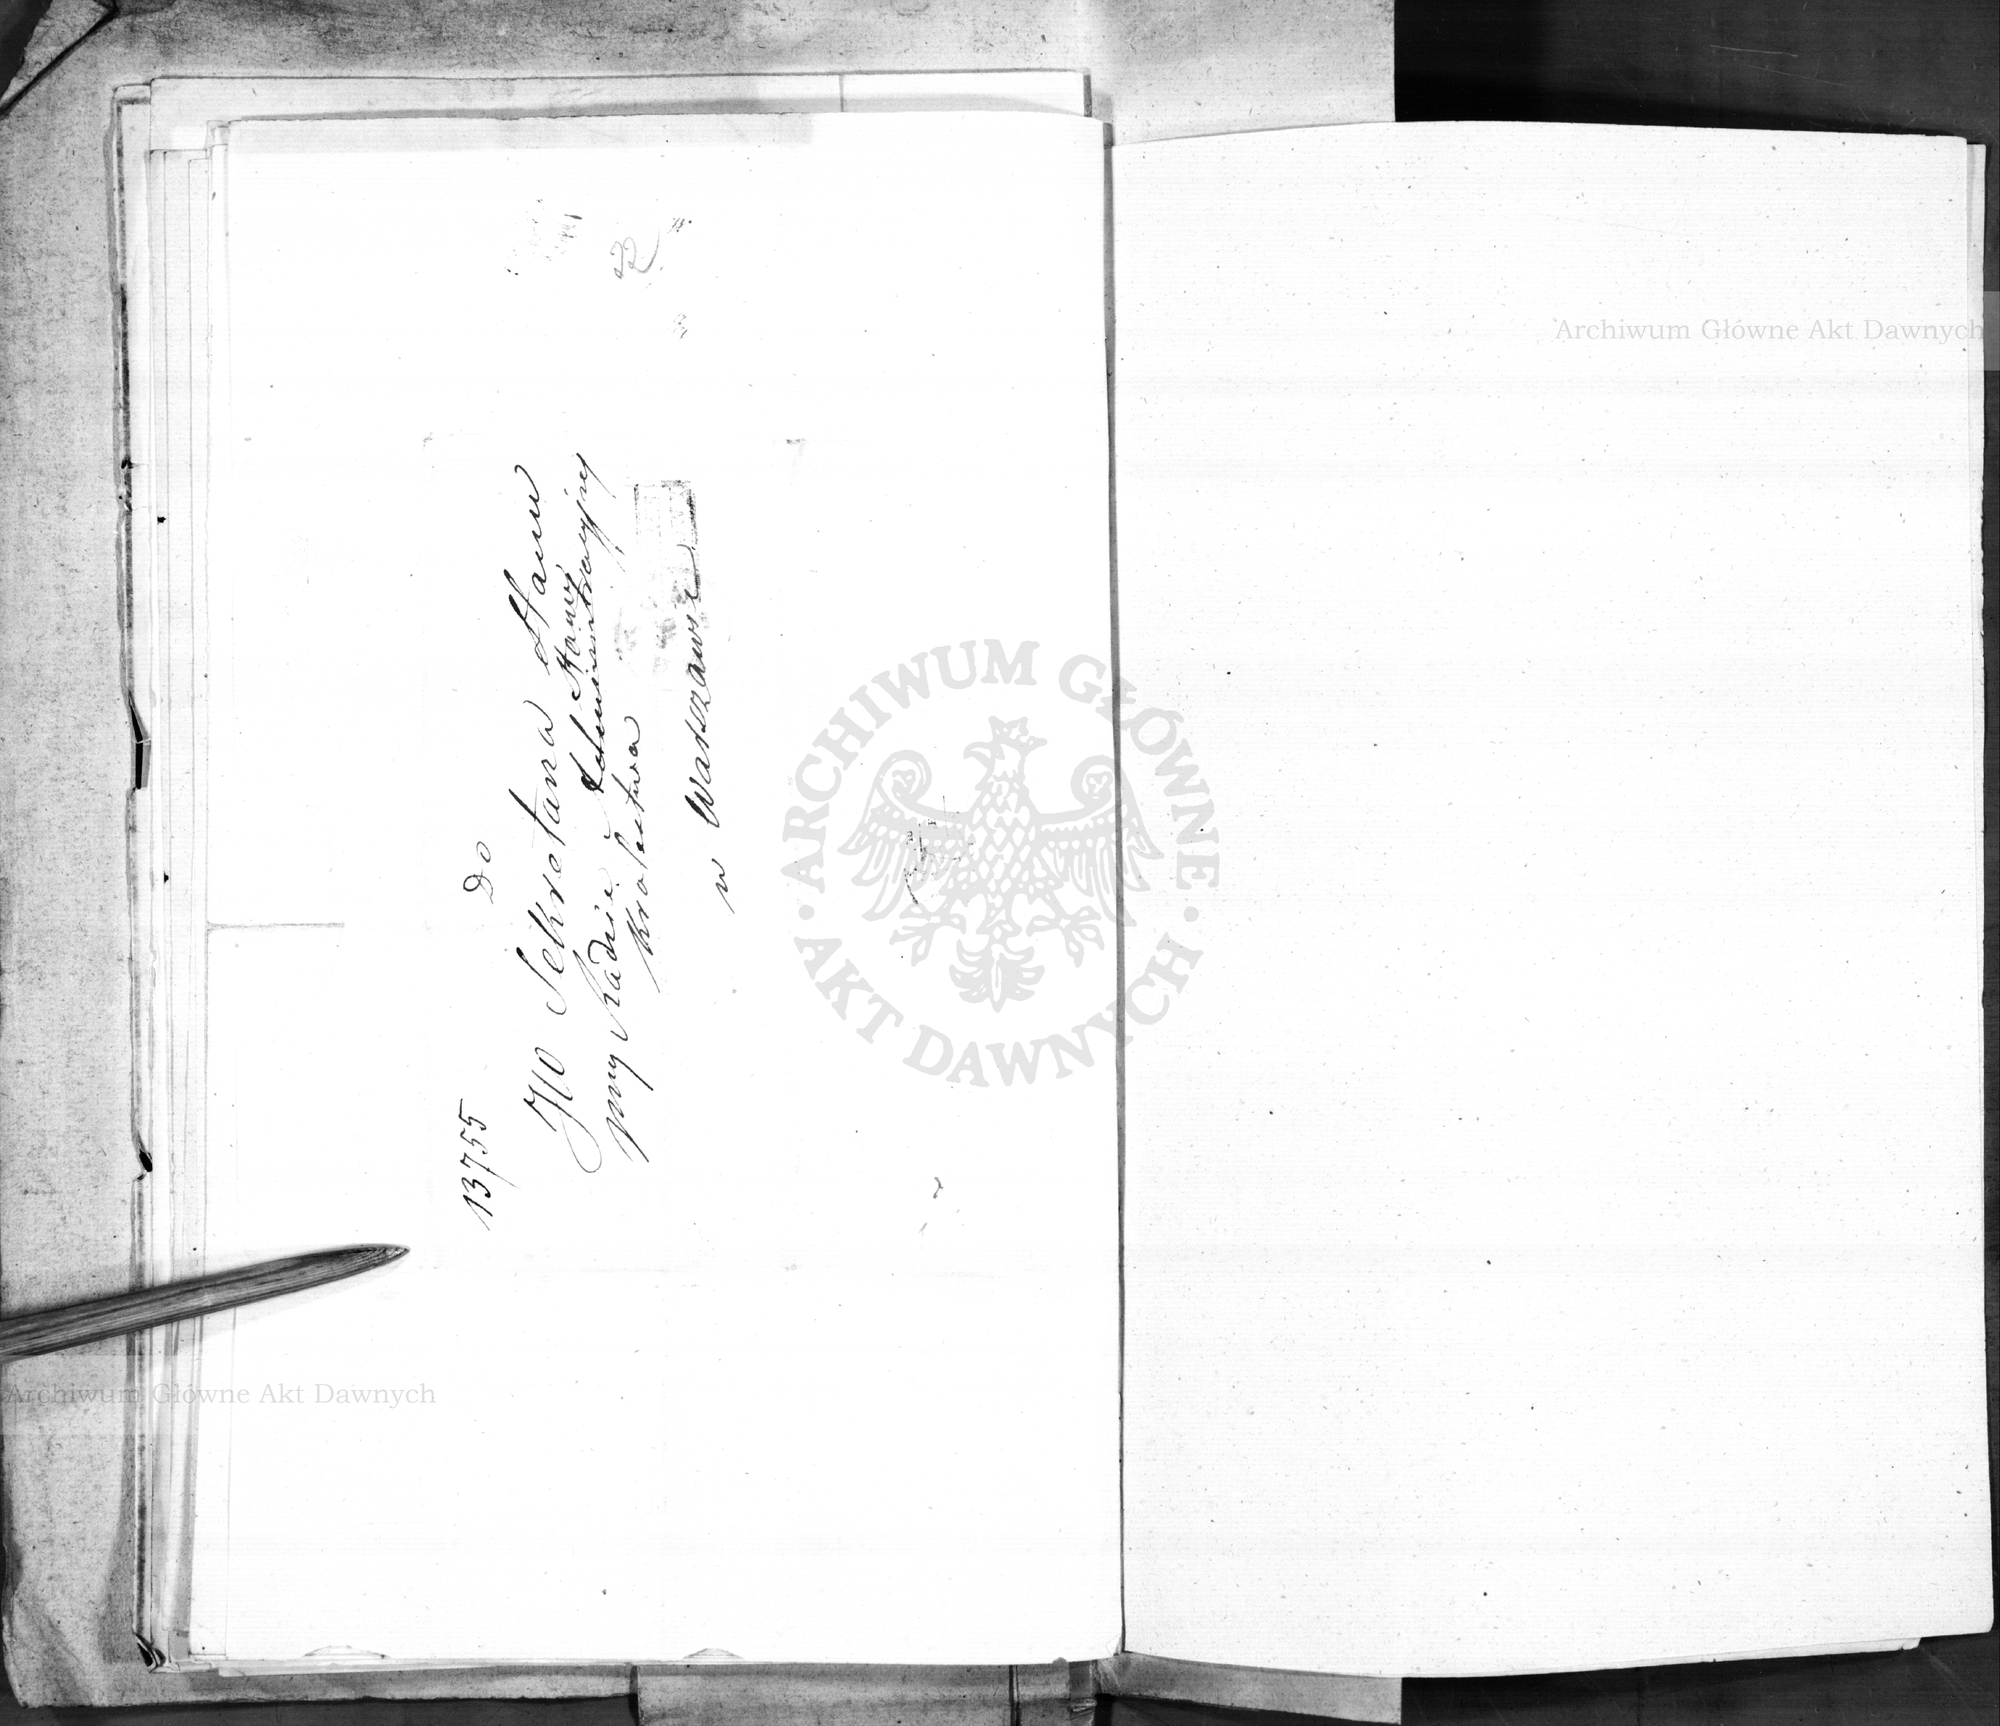 13755
Do
JW Sekretarza Stanu
przy Radzie Stanu
Administracyjnej
Królestwa
w Warszawie
22
ARCHIWUM GŁÓWNE
AKT DAWNYCH
Archiwum Główne Akt Dawnych
Archiwum Główne Akt Dawnych